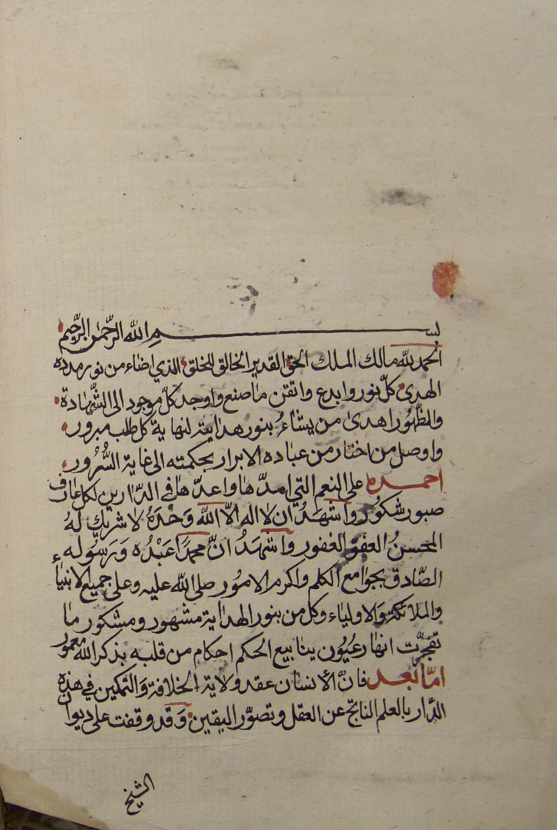 بسم الله الرحمن الرحيم
الحمد لله مالك الملك الحق القدير الخالق للخلق الذي اضاء من نور مدده
الهدى كل نور وابدع واتقن ما صنع واوجد كل موجود الى الشهادة
والظهور اهدى من يشاء بنور هدايته لنهاية كل طلب مبرور
واوصل من اختار من عباده الابرار بحكمته الى غاية السرور
احمده على النعم التي امدها واعدها في الدارين لكل عارف
صبور شكور واشهد ان لا اله الا الله وحده لا شريك له
المحسن العفو الغفور واشهد ان محمدا عبده ورسوله
الصادق بجوامع الكلم واكرم الامور صلى الله عليه وعلى جميع الانبياء
والملائكة والاولياء وكل من بنور الهداية مشهور ومشكور ما
تفجرت انهار عيون ينابيع الحكم احكام من قلبه بذكر الله معمور
اما بعد فان الانسان عقد ولاية الخلافة والتمكين في هذه
الدار بالعلم الناتج عن العقل وتصور اليقين وقد وقفت على ديوان
الشيخ